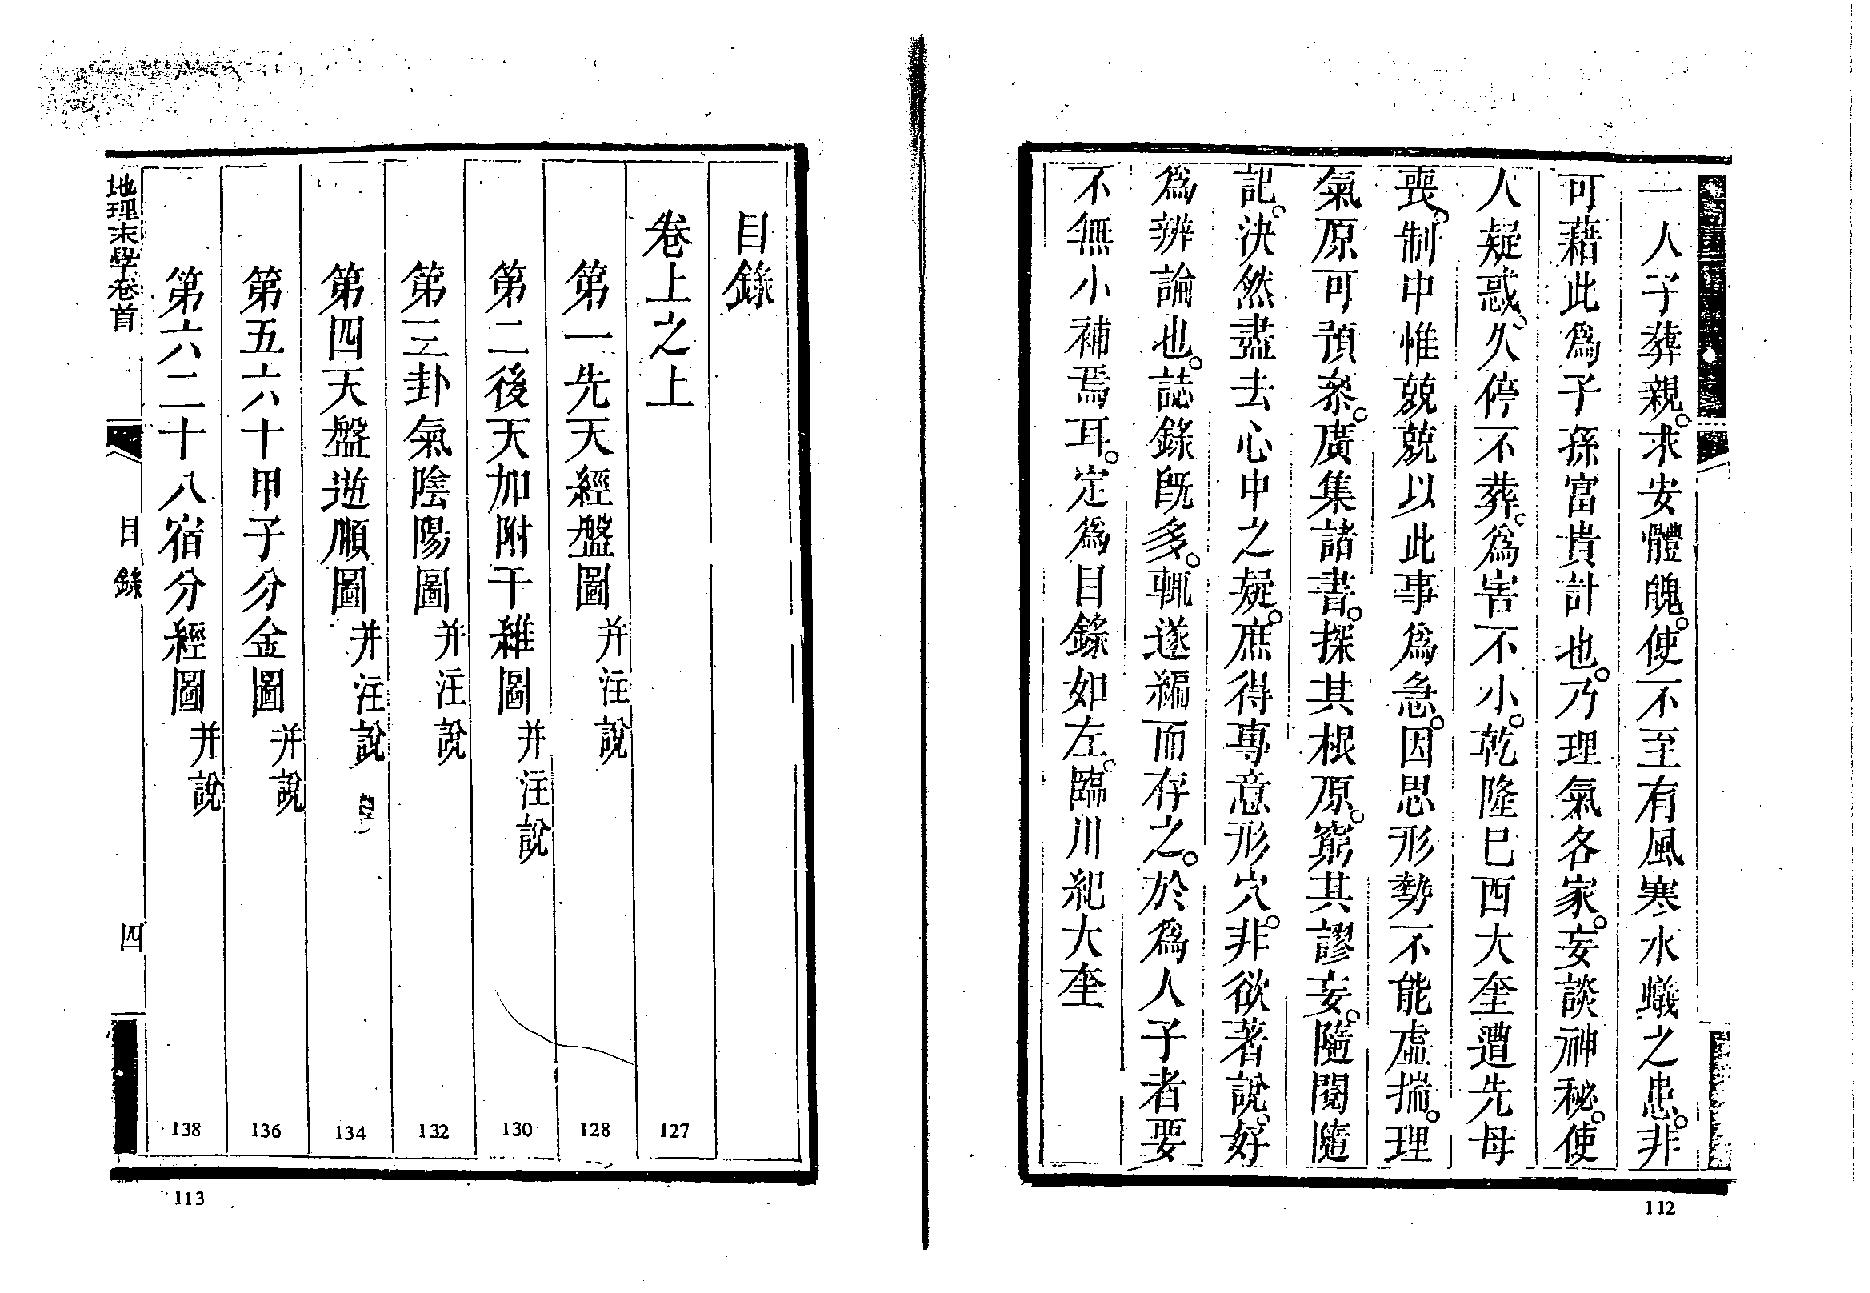 一人子葬親。求安體魄。使不至有風寒水蟻之患。非
可藉此爲子孫富貴計也。乃理氣各家。妄談神秘。使
人疑惑、久停不葬。爲害不小。乾隆巳酉大奎遭先母
喪、制中惟兢兢以此事爲急。因思形勢不能虛揣。理
氣原可預泰。廣集諸書。探其根原。窮其謬妄。隨閱隨
記。決然盡去心中之疑。庶得專意形穴。非欲著說。好
爲辨論也。誌錄旣多。輒遂編而存之。於爲人子者要
不無小補焉耳。定爲目錄如左。臨川紀大奎
112
目錄
卷上之上 127
第一先天經盤圖并注說 128
第二後天加附干維圖并注說 130
第三卦氣陰陽圖并注說 132
第四天盤逆順圖并注說 134
第五六十甲子分金圖并說 136
第六二十八宿分經圖并說 138
地理末學卷首 目錄 四
113